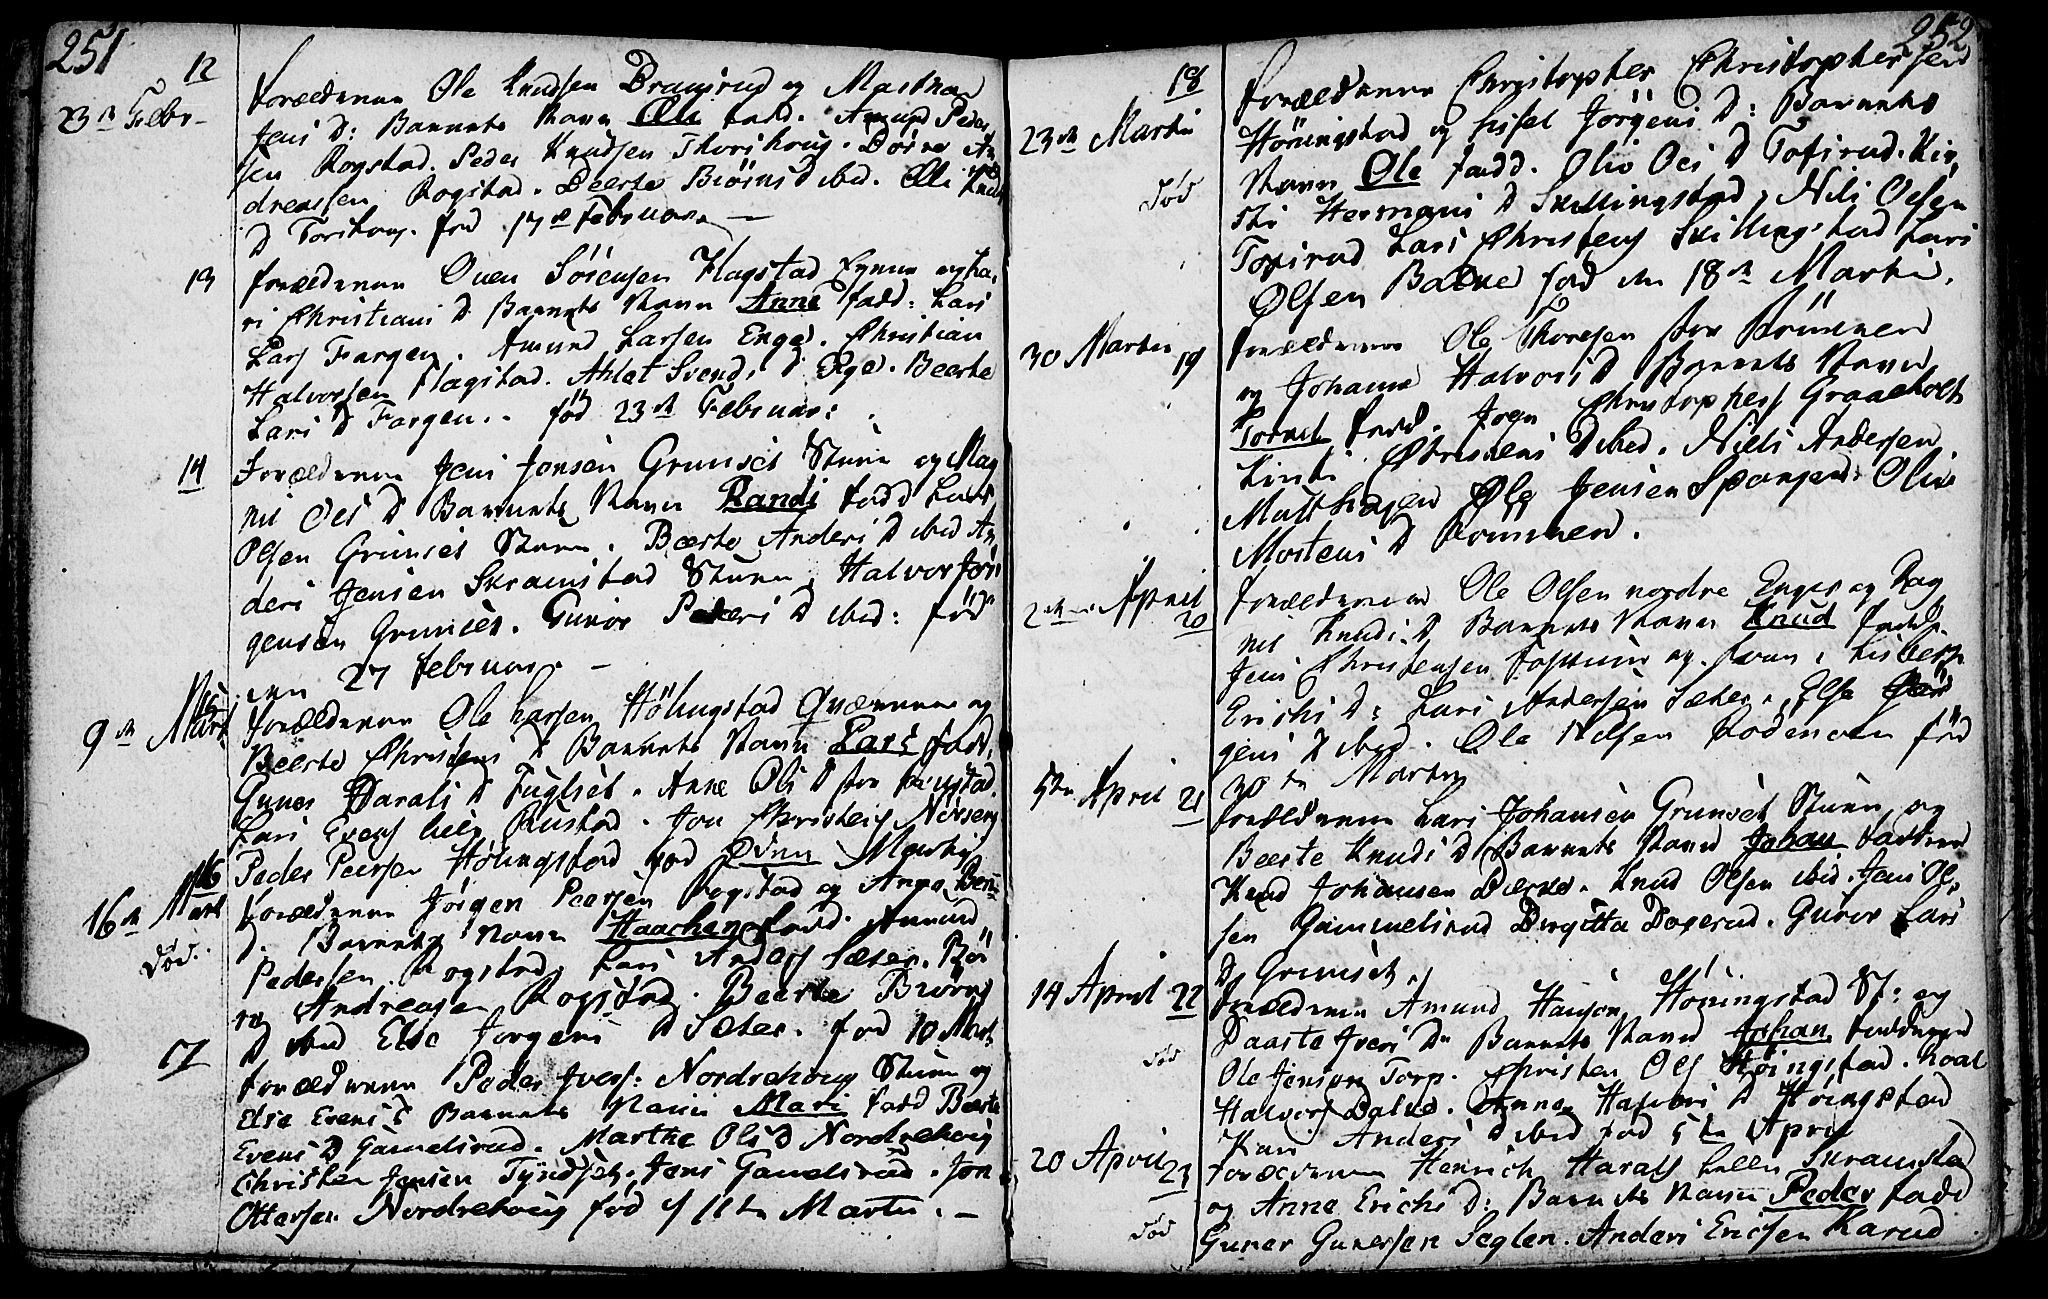 251
12
23de Febr
Forældrene Ole Knudsen Bramrud og Marthe
Jens D: Barnets Navn Ole fadd. Amund Peder
sen Rogstad. Peder Knudsen Thorshoug. Børre An
dreassen Rogstad. Beerte Biørns D ibid. Ole Knud
D Torshoug. fød 17de Februar
13
Forældrene Ouen Sörensen Flagstad Eynen og Ka
ri Christians D. Barnets Navn Anne fadd: Lars
Lars Fargen. Amund Larsen Enge. Christian
Halvorsen Flagstad. Ahlet Svends D Enge. Beerte
Lars D Fargen. fød 23de Februar:
14
Forældrene Jens Jonsen Grunset Stuen og Mag
nil Ols D Barnets Navn Randi fadd Lars
Olsen Grunset Stuen. Beerte Anders D ibid An
ders Jensen Skramstad Stuen, Halvor Jör
gensen Grunset. Guror Peders D ibid: fød
den 27 februar. -
9de Marti
15
Forældrene Ole Larsen Hölingstad Qværnen og
Beerte Christens D Barnets Navn Lars fadd.
Guner Haralds D Fuglset. Anne Ols D
Lars Evens Rustad. Jon Christens
Peder Peersen Hölingstad fød Marti
16de Marti
16
Død.
Forældrene Jörgen Peersen Rogstad og Anne Bent
D. Barnets Navn Haachen fadd. Amund
Pedersen Rogstad, Lars Anders Sæter. Bör
re Andreasen Rogstad. Beerte Biörns
D ibid Else Jorgens D Sæter. fød 10 Mart.
17
Forældrene Peder Ivers: Nordrehoug Stuen og
Else Evens D Barnets Navn Mari fadd Beerte
Evens D Gamelsrud. Marthe Ols D Nordrehoug
Christen Jensen Tyndset, Jens Gamelsrud. Jon
Ottersen Nordrehoug fød d 11te Martii. -
252
18
23de Martii
Død
Forældrene Christopher Christophersen
Höringstad og Sissel Jörgens D: Barnets
Navn Ole fadd. Oliv Ols D Tofsrud. Kir
sti Hermans D Skillingstad, Nils Olsen
Tofsrud Lars Christens Skillingstad Lars
Olsen Balke fød den 18de Martii.
30 Martii
19
Forældrene Ole Thoresen Römmen
og Johanne Halvors D Barnets Navn
Tornil fadd. Jogn Christophers Graaholt
Kirsti Christens D ibid. Niels Andersen
Mutthagen Ole Jensen Spangen. Oliv
Mortens D Römmen.
2den April
20
Forældrene Ole Olsen nordre Enger og Rag
nil Knuds D Barnets Navn Knud fadd.
Jens Christensen og Lisbeth
Erichs D: Lars Andersen Sæter. Else Jör
gens D ibid. Ole Nilsen Rodenoen fød
30te Martii
5te April
21
Forældrene Lars Johansen Grunset Stuen og
Beerte Knuds D Barnets Navn Johan faddere
Knud Johansen Berke. Knud Olsen ibid. Jens Ol
sen Gammelsrud Birgitta Dogerud. Guror Lars
D Grunset.
14 April
22
død
Forældrene Amund Hansön Höringstad St: og
Baaste Ivers D Barnets Navn Johan faddere
Ole Jensön Torp. Christen Ols Höringstad. Roal
Halvors Balke. Anne Halvors D Höringstad
Kari Anders D ibid fød 5te April
20 April
23
Død
Forældrene Henrich Haralds Skramstad
og Anne Erichs D: Barnets Navn Peder fadd
Guner Gunersen Seglen. Anders Ericsen Karud